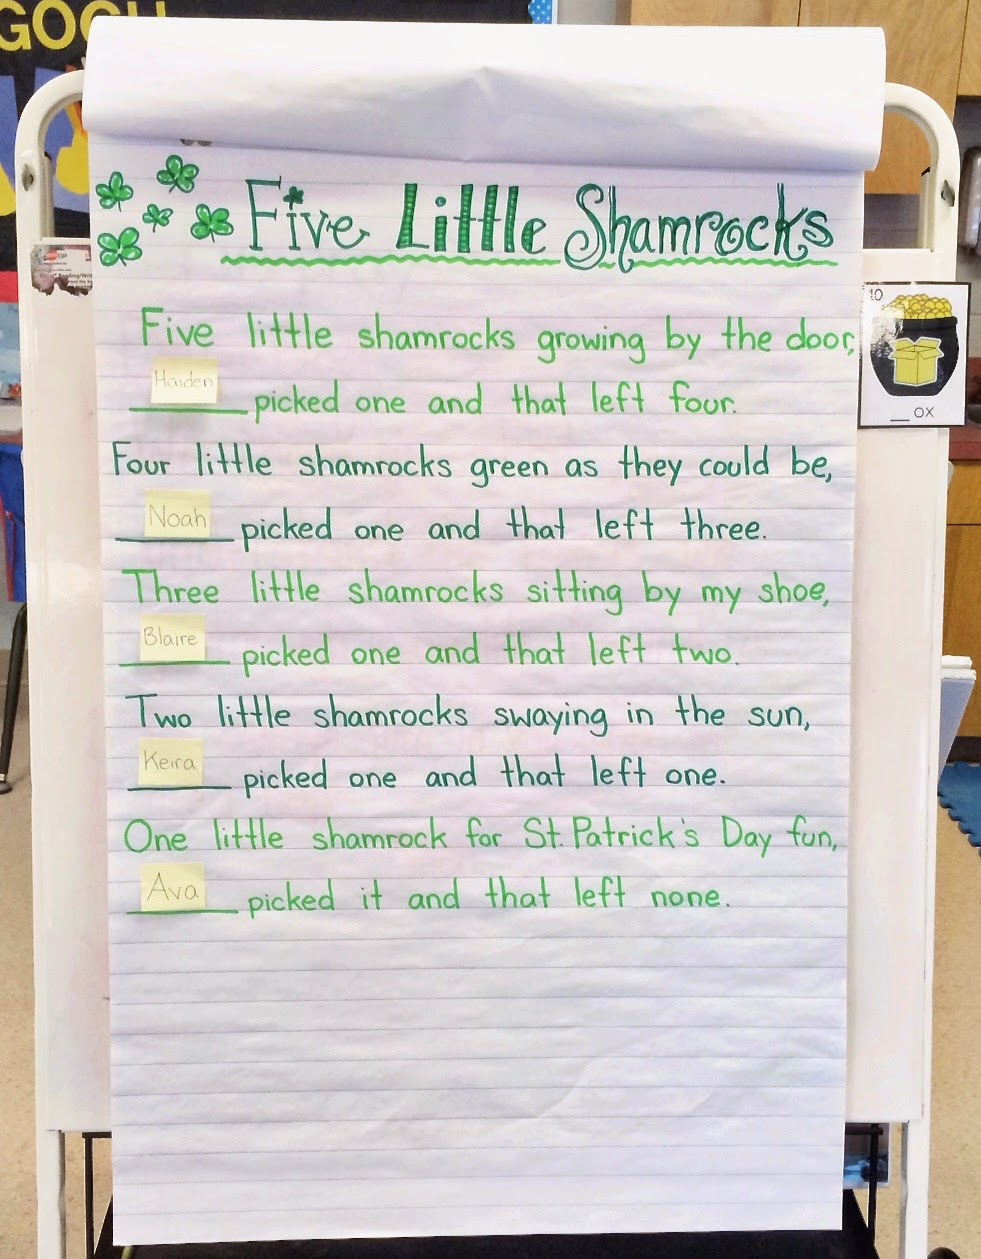 GOO
Five Little Shamrocks
Five little shamrocks growing by the door,
Haiden picked one and that left four.
Four little shamrocks green as they could be,
Noah picked one and that left three.
Three little shamrocks sitting by my shoe,
Blaire picked one and that left two.
Two little shamrocks swaying in the sun,
Keira picked one and that left one.
One little shamrock for St. Patrick's Day fun,
Ava picked it and that left none.
10
__ox